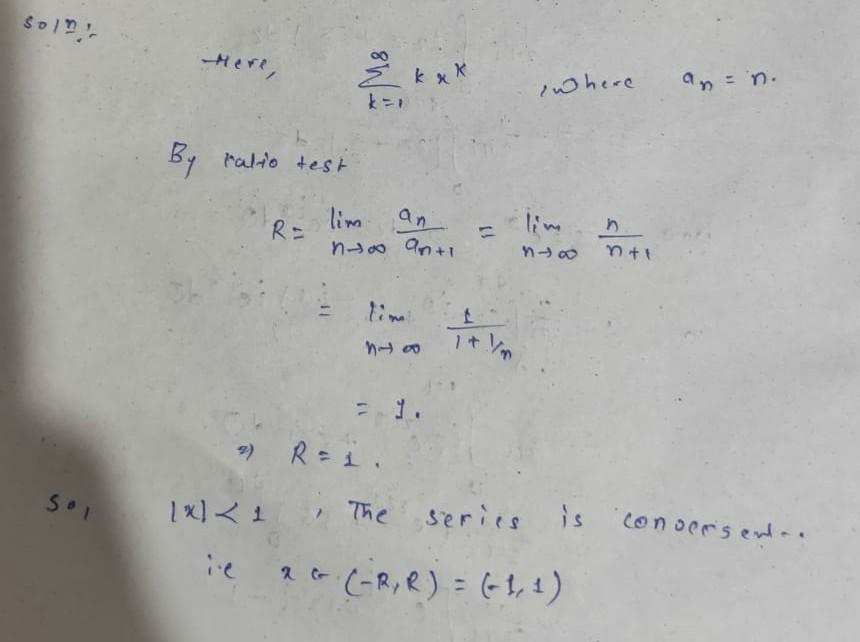 Soln:-
Here, ∞ Σ k=1 k x^k , where a_n = n.
By ratio test
R = lim n→∞ a_n / a_n+1 = lim n→∞ n / n+1
= lim n→∞ 1 / 1 + 1/n
= 1.
⇒ R = 1.
So, |x| < 1 , The series is convergent..
i.e x ∈ (-R, R) = (-1, 1)